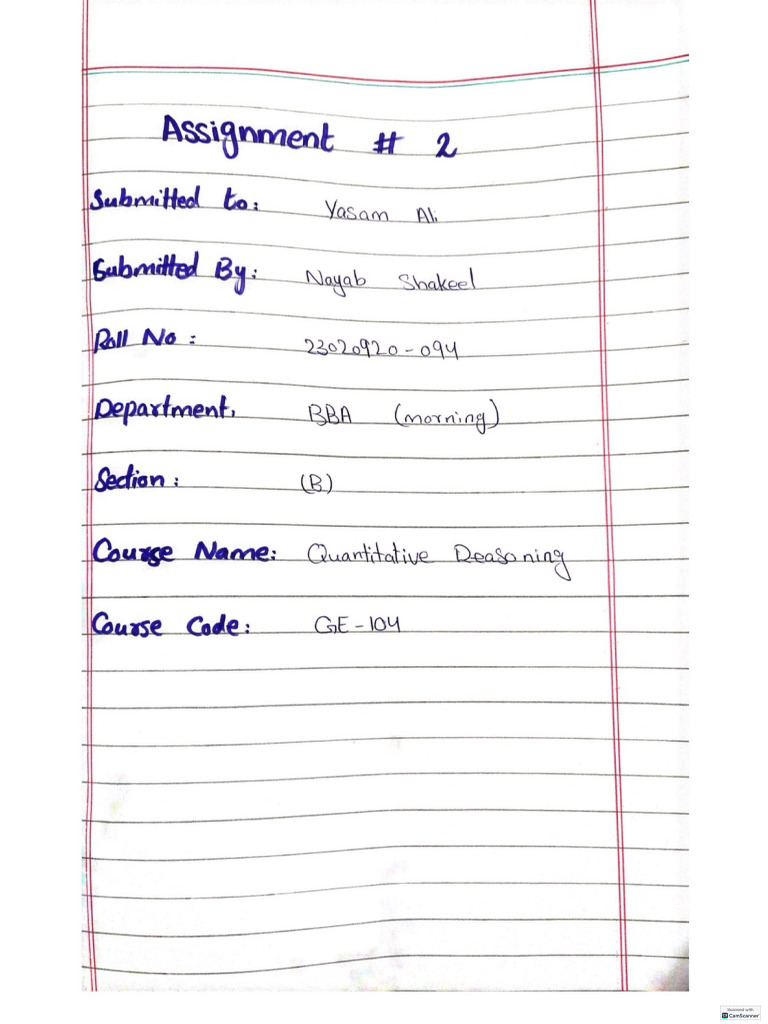 Assignment # 2
Submitted to: Yasam Ali
Submitted By: Nayab Shakeel
Roll No: 23020920-094
Department, BBA (morning)
Section: (B)
Course Name: Quantitative Reasoning
Course Code: GE-104
Scanned with
CamScanner